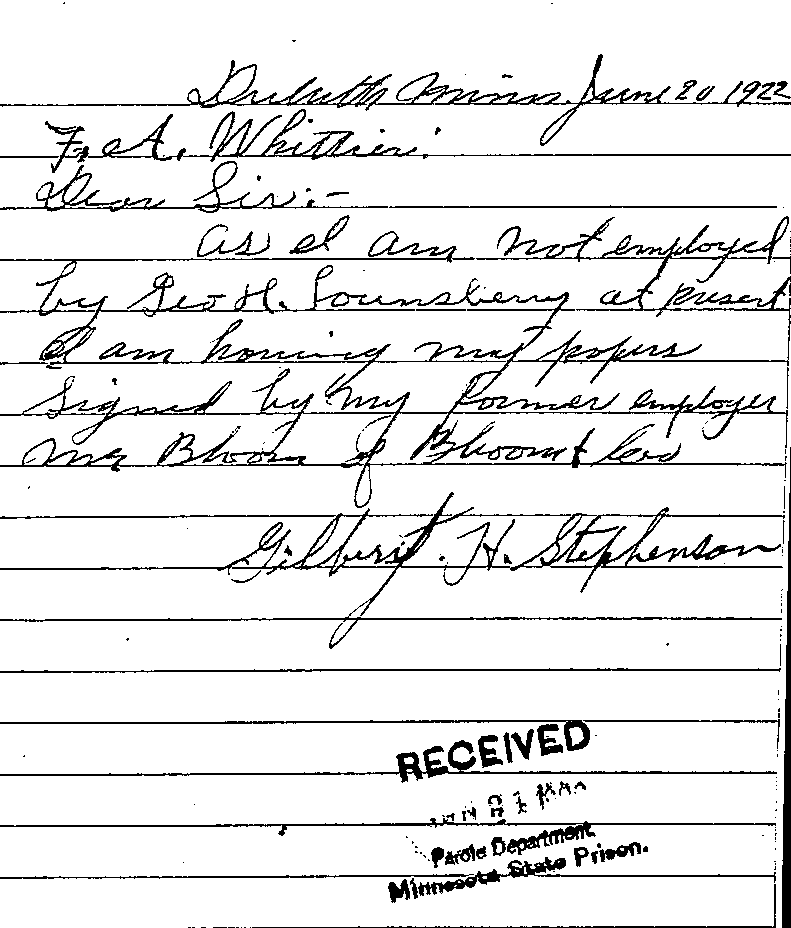 Duluth Minn. June 20 1922
F. A. Whittier:
Dear Sir:-
As I am not employed
by Geo H. Lounsberry at present
I am having my papers
signed by my former employer
Mr Bloom of Bloom & Co
Gilbert. H. Stephenson
RECEIVED
21
Parole Department,
Minnesota State Prison.